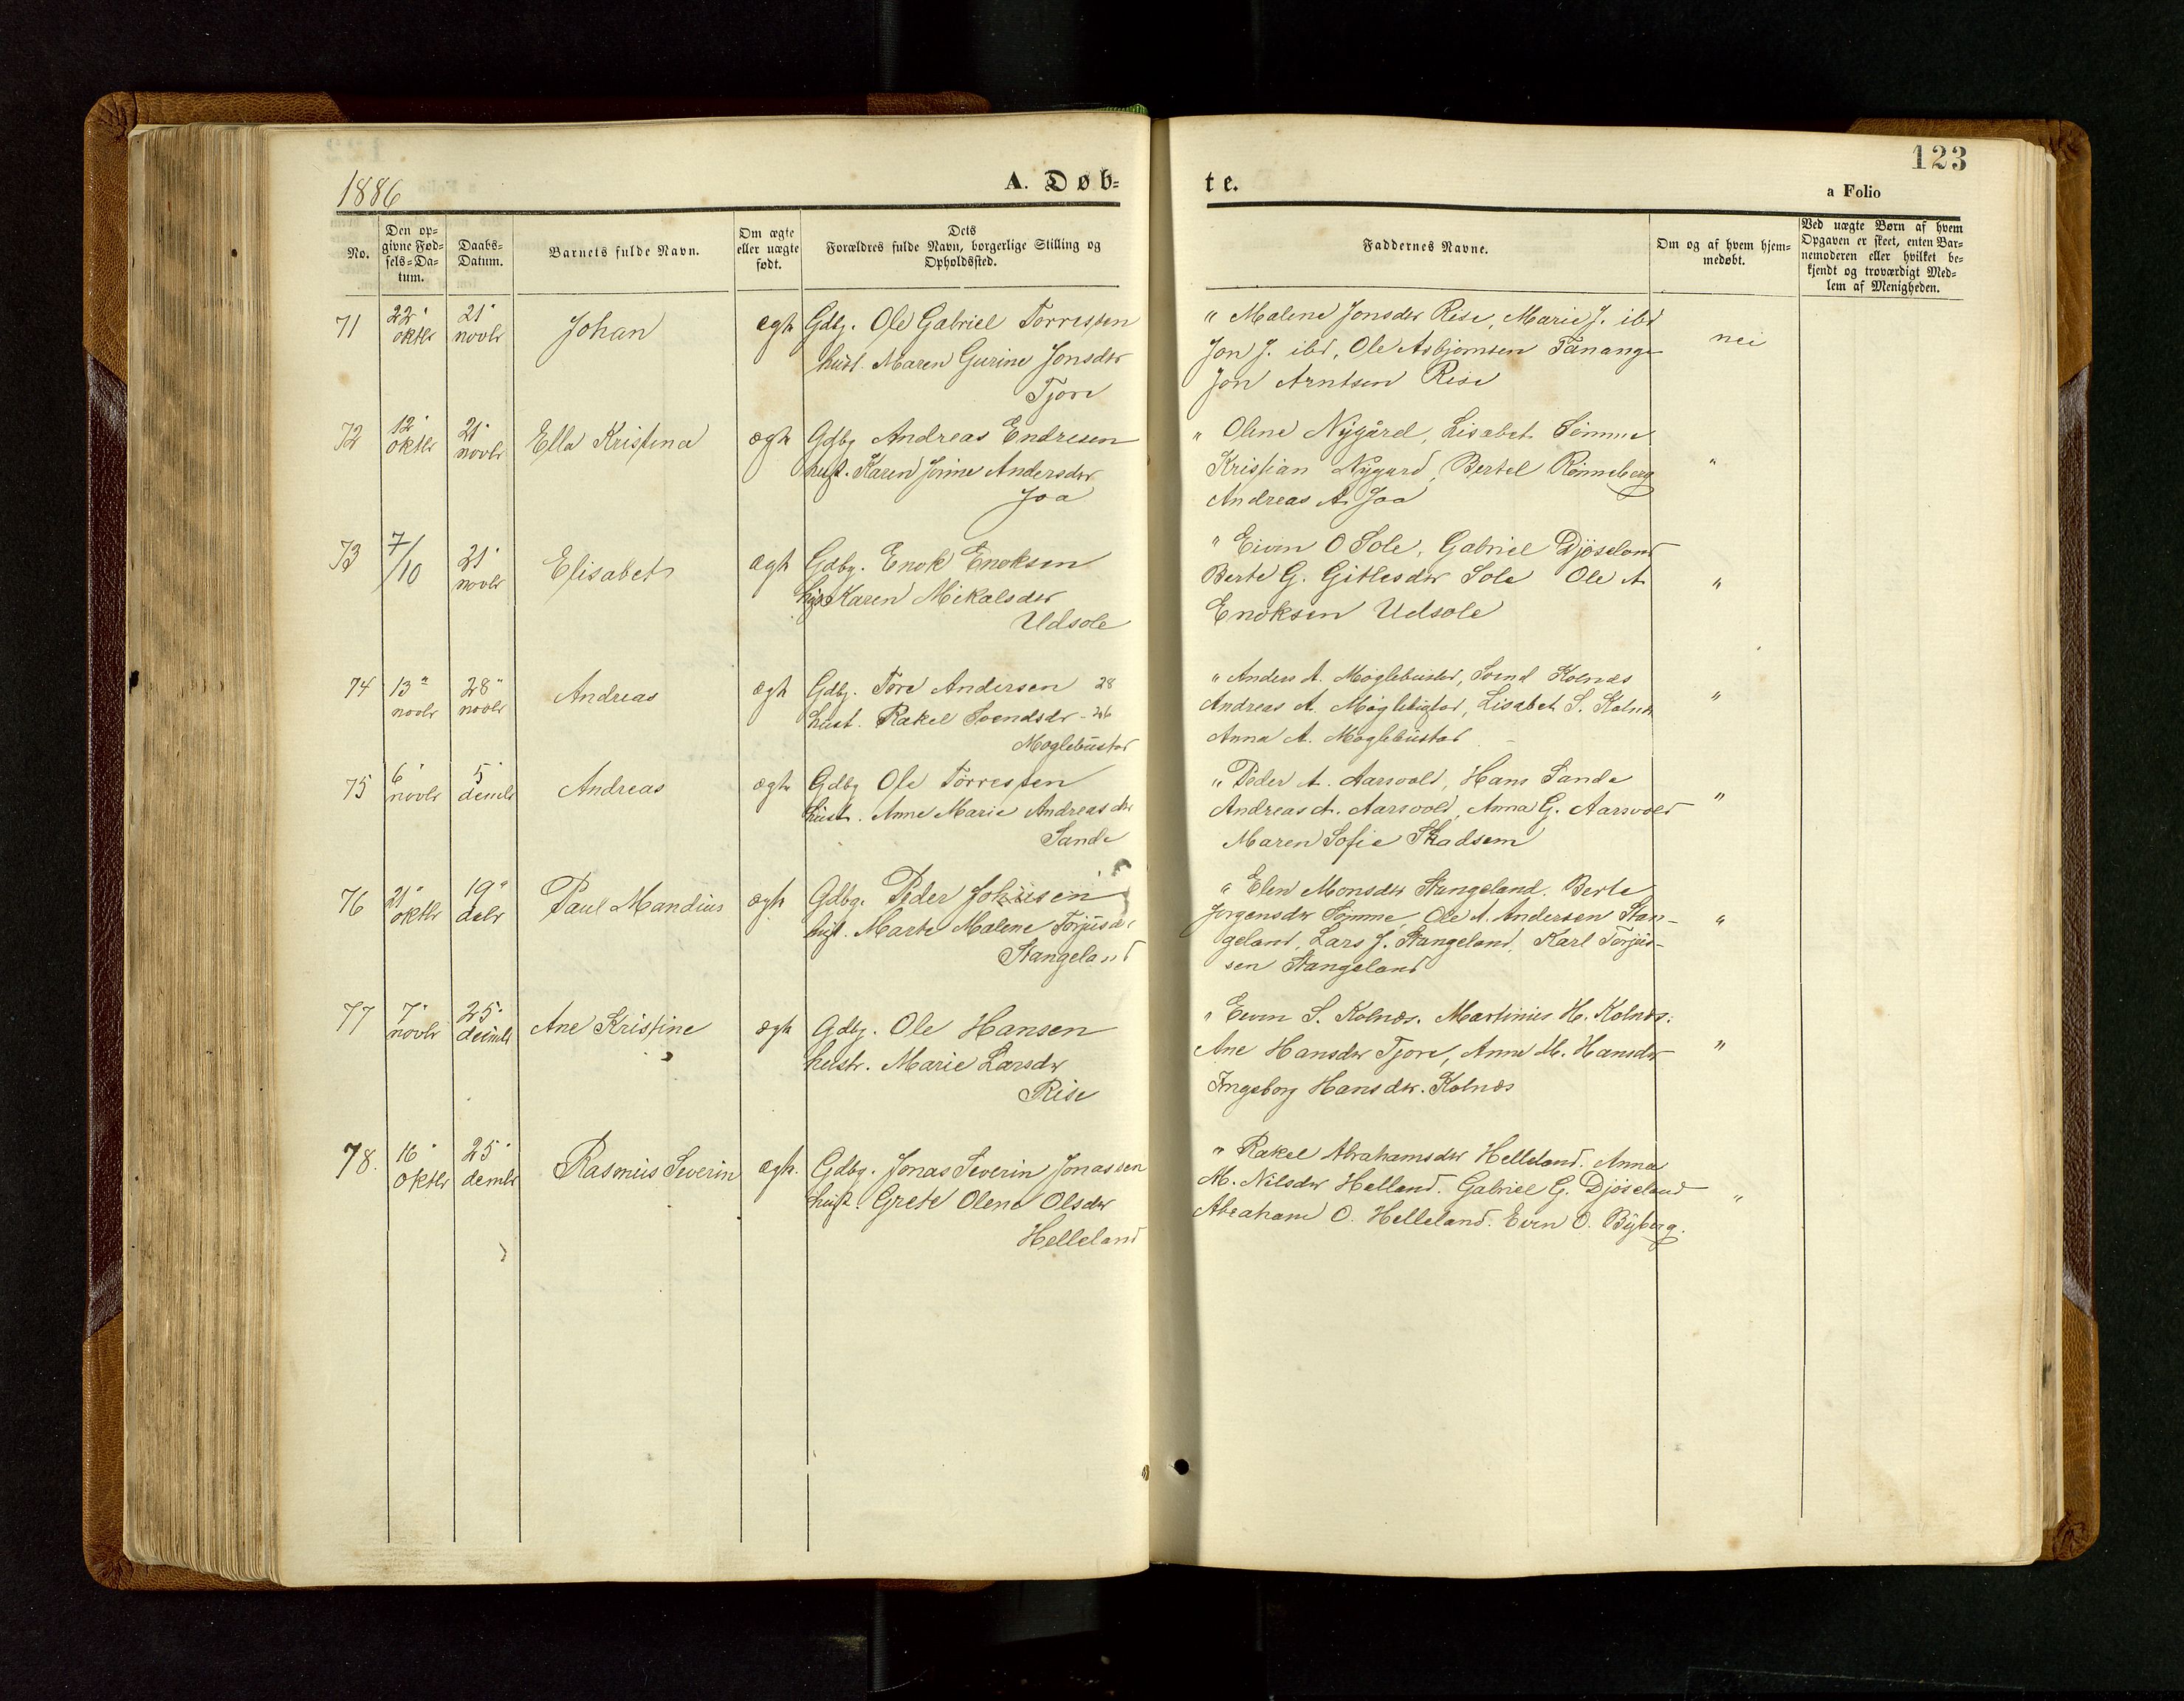 1886
A. Døb=
te.
123
a Folio
No.
Den op=
givne Fød=
sels=Da=
tum.
Daabs=
Datum.
Barnets fulde Navn.
Om ægte
eller uægte
født.
Dets
Forældres fulde Navn, borgerlige Stilling og
Opholdssted.
Faddernes Navne.
Om og af hvem hjem=
medøbt.
Ved uægte Børn af hvem
Opgaven er skeet, enten Bar=
nemoderen eller hvilket be=
kjendt og troværdigt Med=
lem af Menigheden.
71
22'
oktbr
21'
novbr
Johan
ægte
Gdbg. Ole Gabriel Torressen
hust. Maren Gurine Jonsdtr
Tjore
" Malene Jonsdtr Rise, Marie J. ibd
Jon J. ibd, Ole Asbjørnsen Tananger
Jon Arntsen Rise
nei
72
12'
oktbr
21'
novbr
Ella Kristina
ægte
Gdbg Andreas Endresen
hust. Karen Jonine Andersdtr
Joa
" Oline Nygård, Lisabet Sømme
Kristian Nygård, Bertel Rønneberg
Andreas A. Joa
"
73
7/10
21'
novbr
Elisabet
ægte
Gdbg. Enok Enoksen
hust Karen Mikalsdtr
Udsole
" Eivin O Sole, Gabriel Djøseland
Berte G. Gitlesdtr Sole Ole A
Enoksen Udsole
"
74
13"
novbr
28"
novbr
Andreas
ægte
Gdbg. Tore Andersen 28
hust. Rakel Svendsdtr - 26
Møglebustad
" Anders A. Møglebustad, Svend Kolnæs
Andreas A. Møglebustad, Lisabet S. Kolnæs
Anna A. Møglebustad
"
75
6'
novbr
5'
decmbr
Andreas
ægte
Gdbg Ole Torressen
hust. Anne Marie Andreasdtr
Sande
" Peder A. Aarsvold, Hans Sande
Andreas A. Aarsvold, Anna G. Aarsvold
Maren Sofie Skadsem
"
76
21'
oktbr
19'
debr
Paul Mandius
ægte
Gdbg. Peder Johnsen
hust. Marte Malene Torjusdtr
Stangeland
" Elen Monsdtr Stangeland. Berte
Jørgensdtr Sømme, Ole A. Andersen Stan-
geland, Lars J. Stangeland, Karl Torjus-
sen Stangeland
"
77
7'
novbr
25'
decmbr
Ane Kristine
ægte
Gdbg. Ole Hansen
hustr. Marie Larsdtr
Rise
" Eivin S. Kolnæs. Martinius H. Kolnæs.
Ane Hansdtr Tjore, Anne M. Hansdtr
Ingeborg Hansdtr. Kolnæs
"
78.
16'
oktbr
25'
dembr
Rasmus Severin
ægte.
Gdbg. Jonas Severin Jonassen
hust. Grete Olene Olsdtr
Helleland
" Rakel Abrahamsdtr Helleland. Anna
M. Nilsdtr Helland. Gabriel G. Djøseland
Abraham O. Helleland. Evin O. Byberg.
"